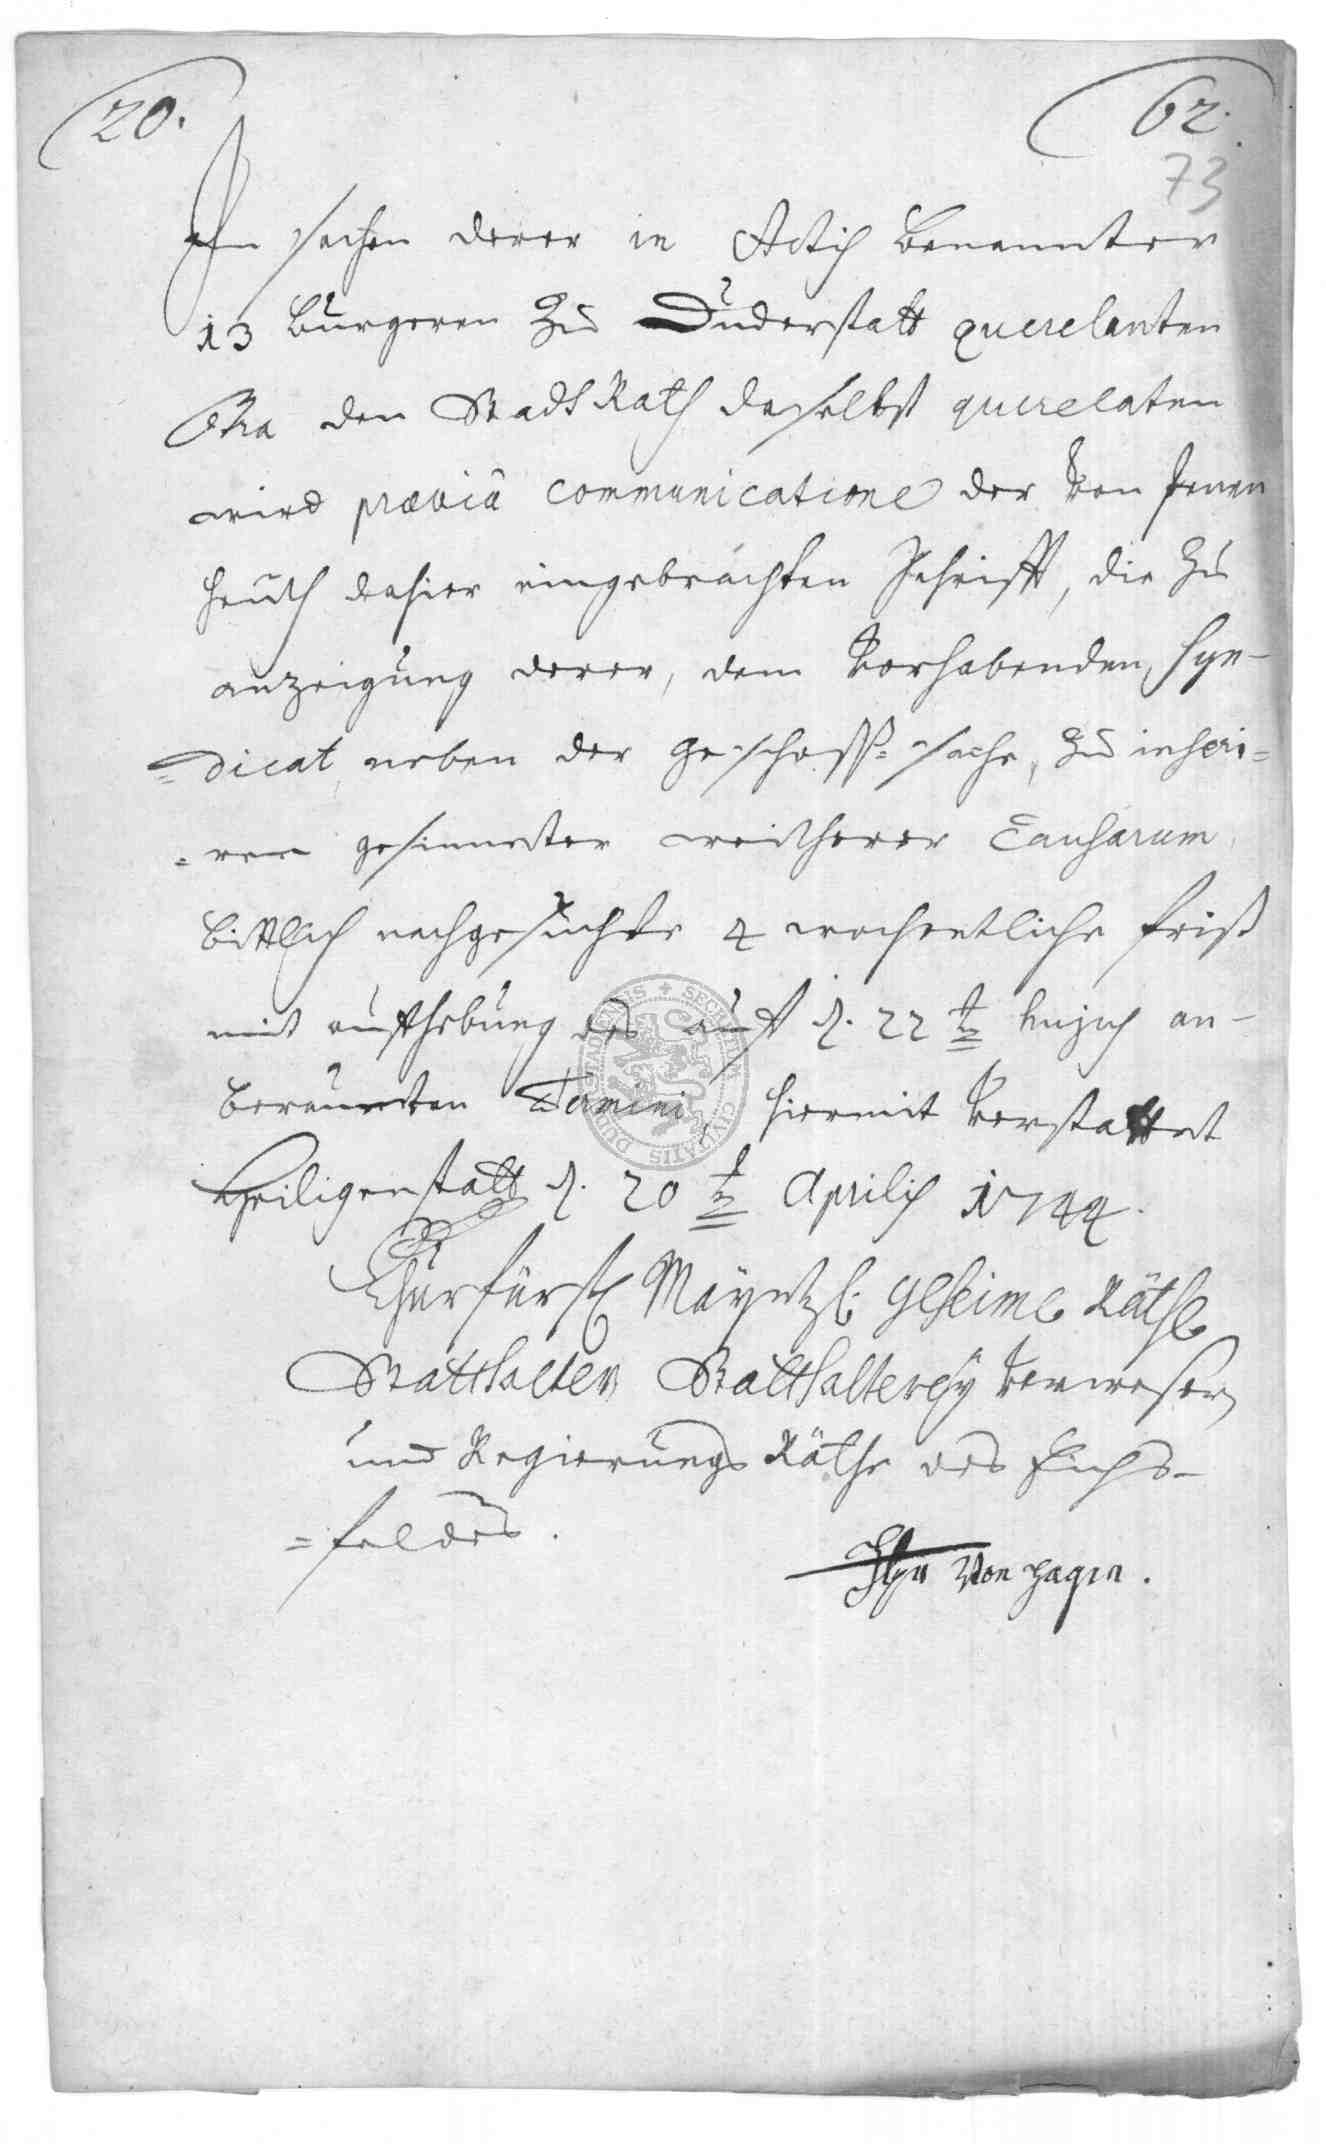 20.
62.
73
In sachen derer in Actis benannter
13 bürgeren zu Duderstatt querelanten
Ctra den Stadt Rath daselbst querelaten
wird præviâ communicatione der von jenen
heuth dahier eingebrachten Schrifft, die zu
anzeigung derer, dem Vorhabenden Syn-
=dicat, neben der geschoss=sache, zu inseri=
=ren gesinnter weitherer Causarum
bittlich nachgesuchte 4 wochentliche frist
mit aufhebung des auff d. 22t hujus an-
beraumten Termini, hiermit Verstattet
Heiligenstatt d. 20t Aprilis 1744.
Churfürstl Mayntzl. geheime Räthe
Statthalter Statthalterey Verweser
und Regierungs Räthe des Eichs-
=feldes.
von Hagen.
SECRETUM CIVITATIS